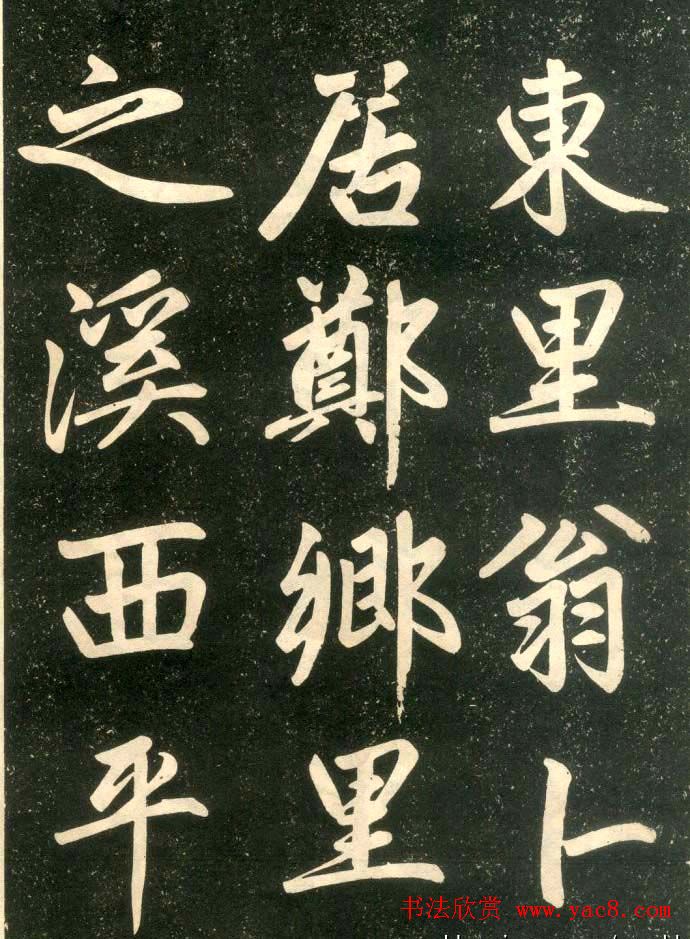 東里翁卜
居鄭鄉里
之溪西平
书法欣赏 www.yac8.com